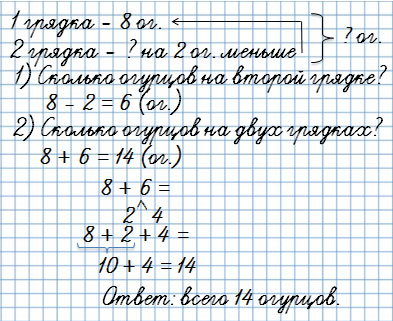 1 грядка – 8 ог.
2 грядка – ? на 2 ог. меньше
? ог.
1) Сколько огурцов на второй грядке?
8 – 2 = 6 (ог.)
2) Сколько огурцов на двух грядках?
8 + 6 = 14 (ог.)
8 + 6 =
2 4
8 + 2 + 4 =
10 + 4 = 14
Ответ: всего 14 огурцов.